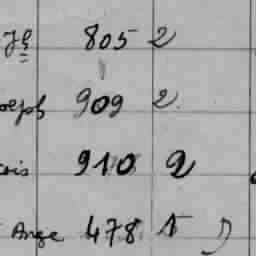 Jh 805 2
oseph 909 2
cois 910 2
Ange 478 1